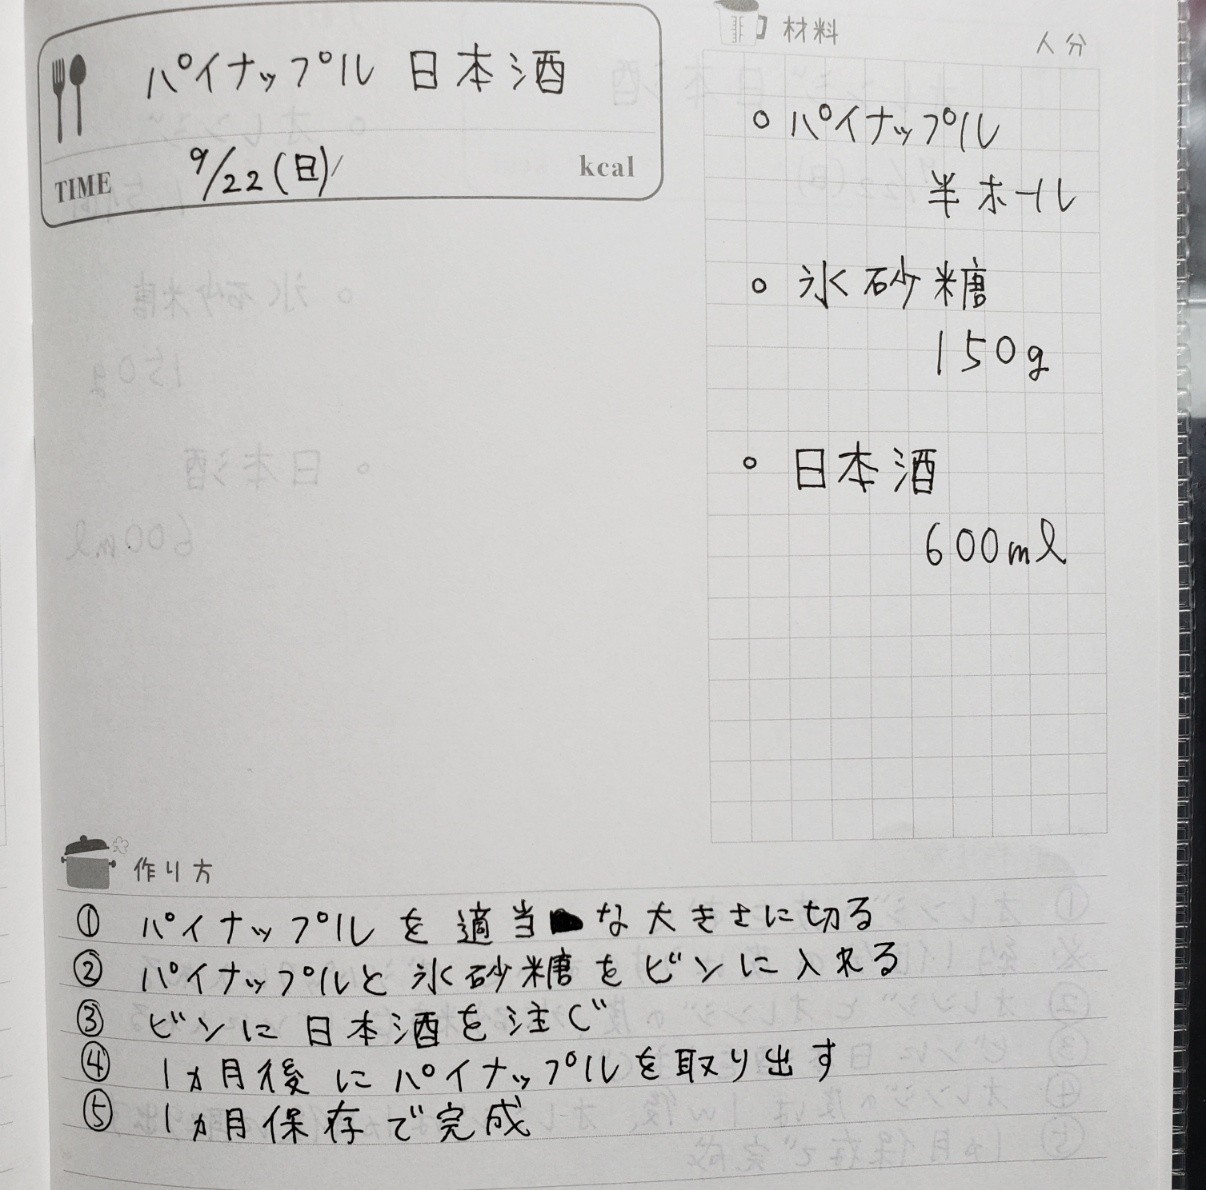 パイナップル 日本酒
TIME 9/22(日) kcal
材料 人分
○ パイナップル
半ホール
○ 氷砂糖
150g
○ 日本酒
600ml
作り方
① パイナップルを適当な大きさに切る
② パイナップルと氷砂糖をビンに入れる
③ ビンに日本酒を注ぐ
④ 1ヵ月後にパイナップルを取り出す
⑤ 1ヵ月保存で完成